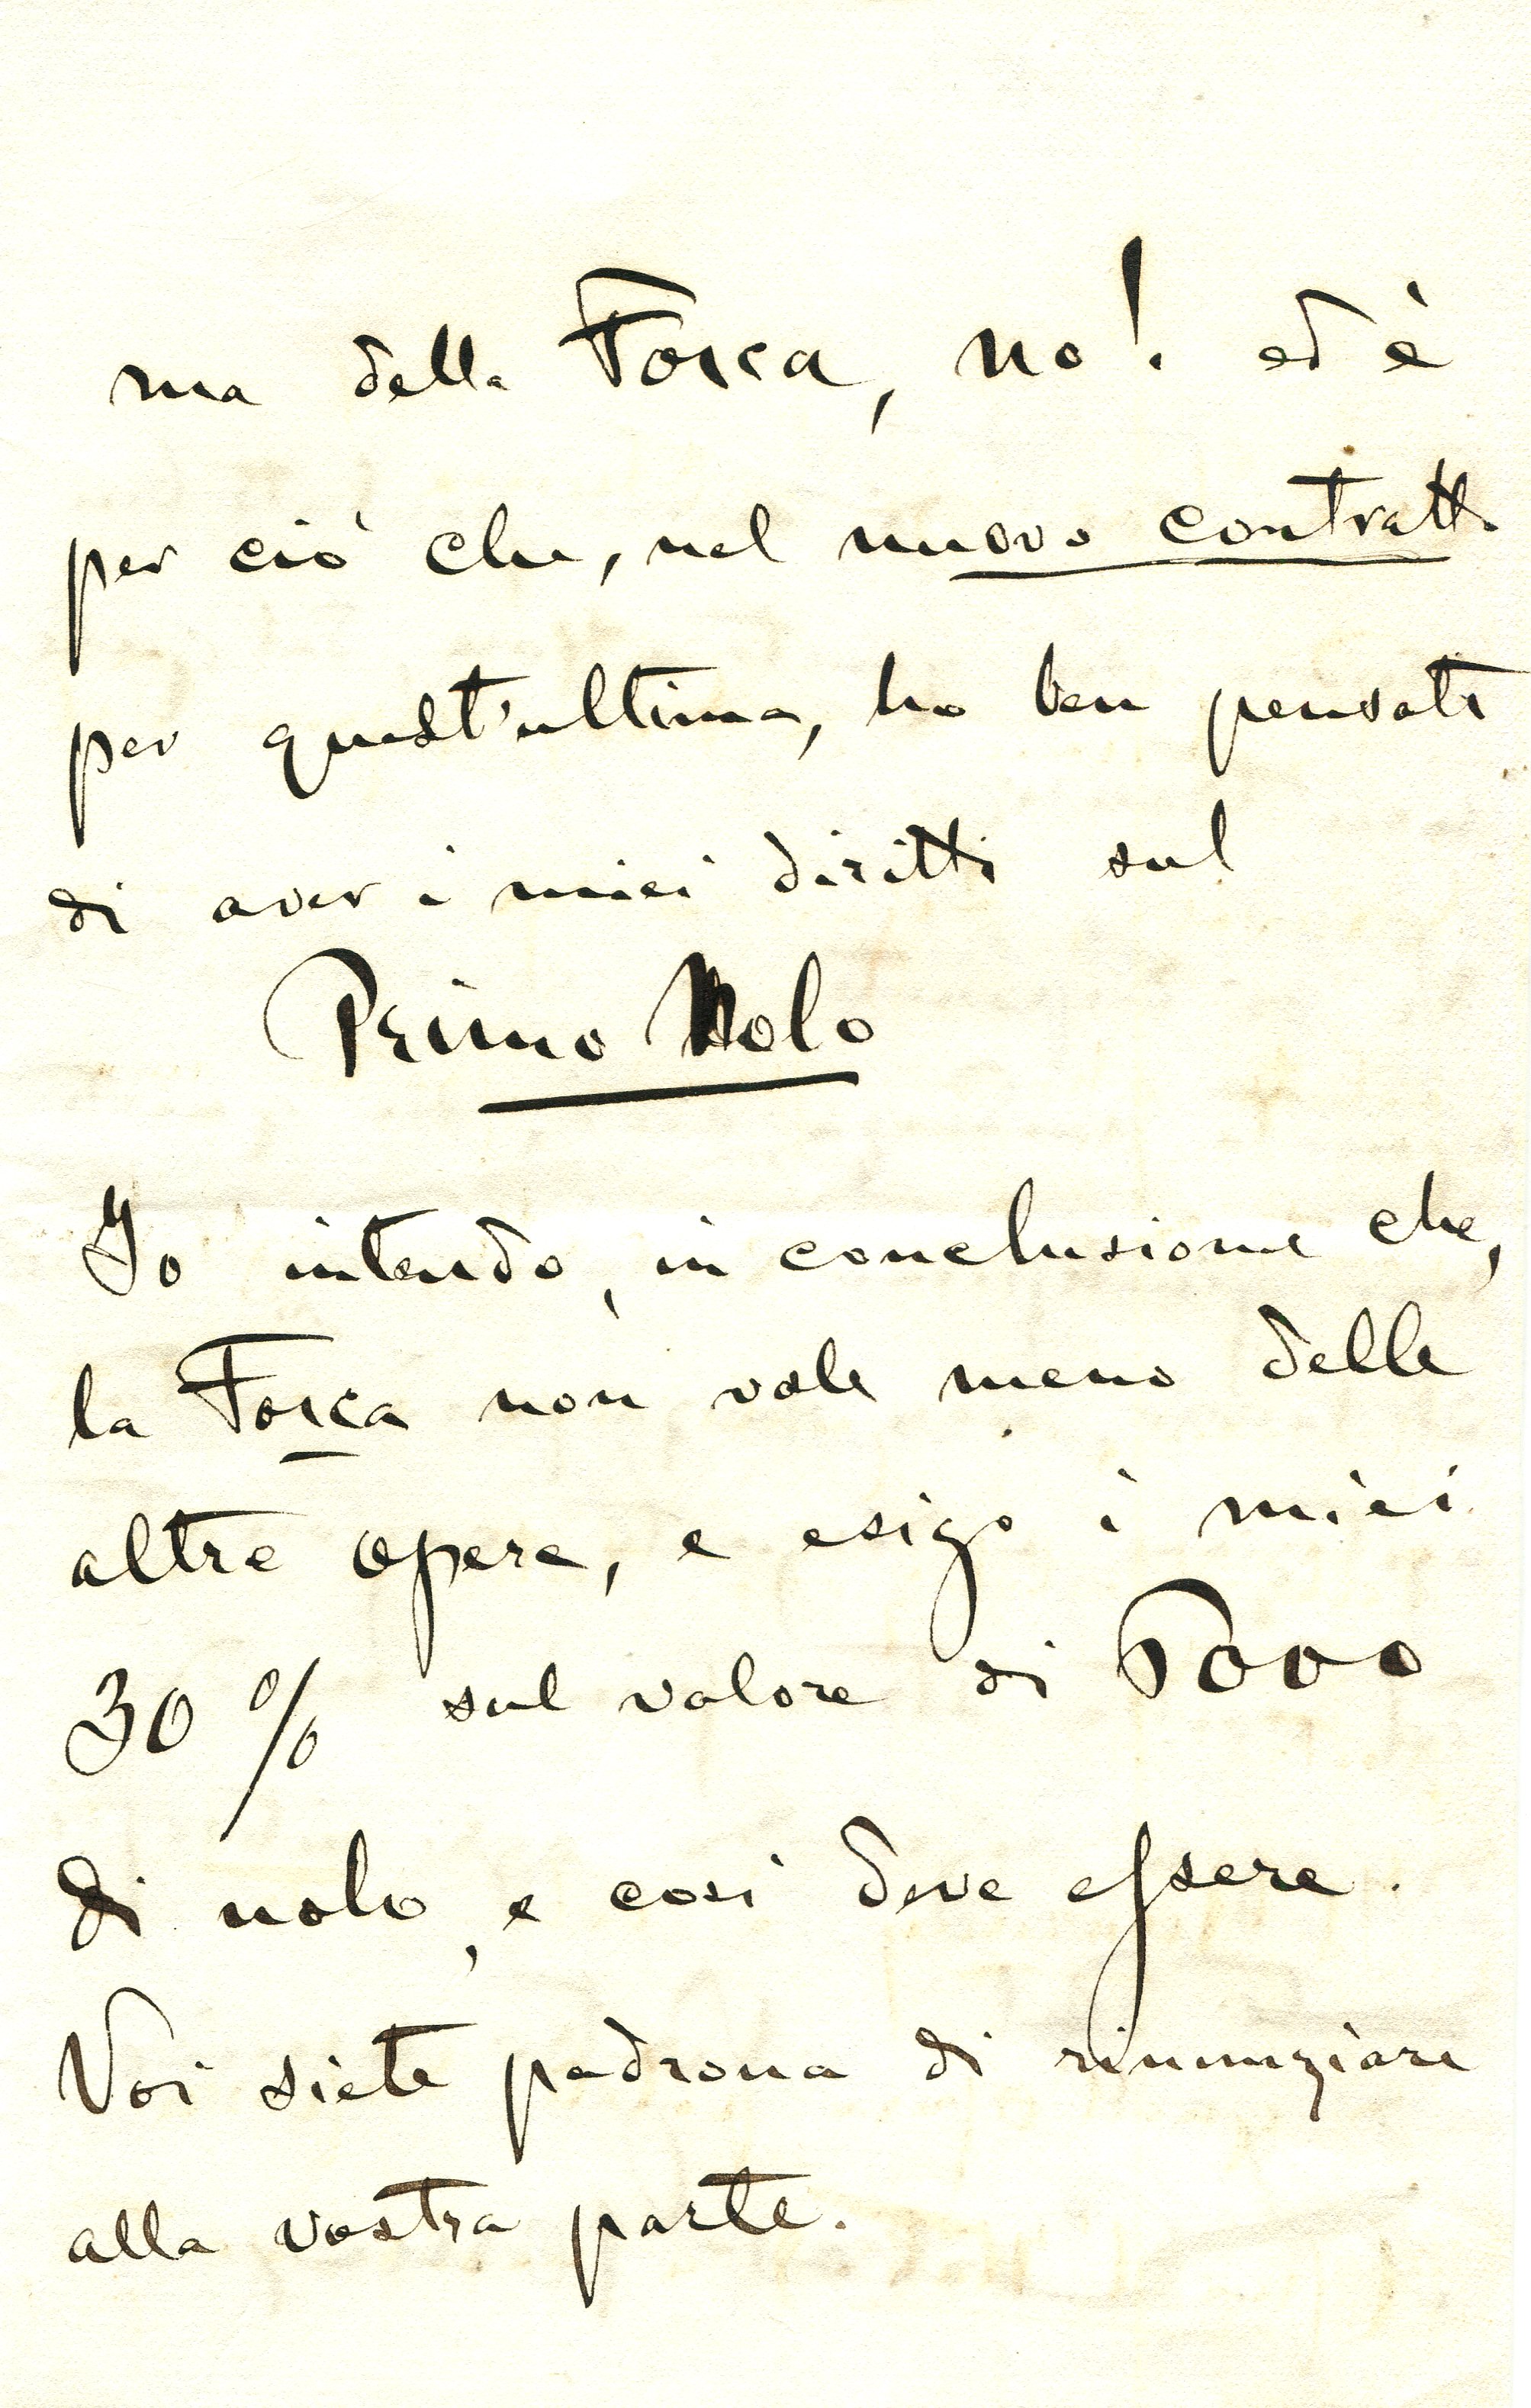 ma della Fosca, no! ed è
per ciò che, nel nuovo contratto
per quest'ultima, ho ben pensato
di aver i miei diritti sul
Primo Nolo
Io intendo, in conclusione che,
la Fosca non vale meno delle
altre opere, e esigo i miei
30 % sul valore di
di nolo, e così deve essere.
Voi siete padrona di rinunziare
alla vostra parte.